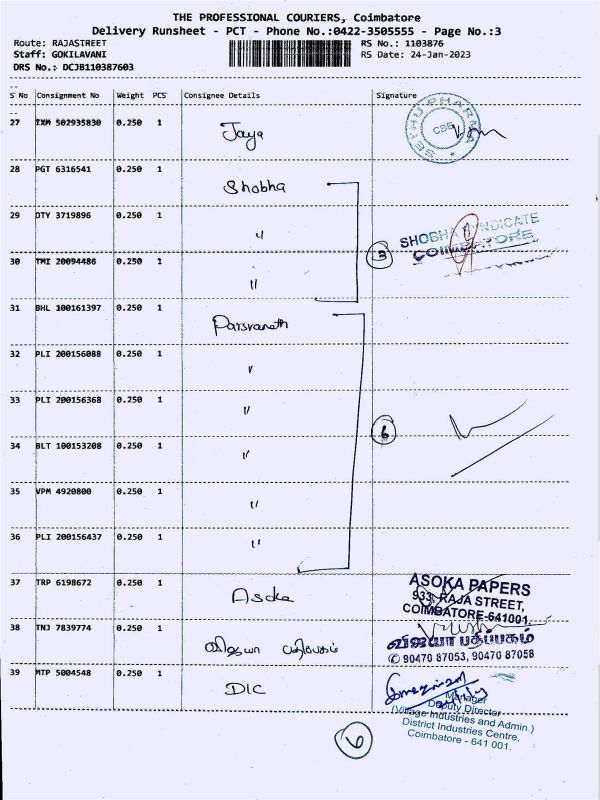 THE PROFESSIONAL COURIERS, Coimbatore
Delivery Runsheet - PCT - Phone No.:0422-3505555 - Page No.:3
Route: RAJASTREET RS No.: 1103876
Staff: GOKILAVANI RS Date: 24-Jan-2023
DRS No.: DCJB110387603
S No Consignment No Weight PCS Consignee Details Signature
27 IXM 502935830 0.250 1 Jaya SETHU PHARMA CBE
28 PGT 6316541 0.250 1 Shobha
29 OTY 3719896 0.250 1 "
SHOBHA SYNDICATE
COIMBATORE
3
30 TMI 20094486 0.250 1 "
31 BHL 100161397 0.250 1 Parsvanath
32 PLI 200156088 0.250 1 "
33 PLI 200156368 0.250 1 "
6
34 BLT 100153208 0.250 1 "
35 VPM 4920800 0.250 1 "
36 PLI 200156437 0.250 1 "
37 TRP 6198672 0.250 1 Asoka
ASOKA PAPERS
933, RAJA STREET,
COIMBATORE-641001.
38 TNJ 7839774 0.250 1 விஜயா பதிப்பகம்
விஜயா பதிப்பகம்
✆ 90470 87053, 90470 87058
39 MTP 5004548 0.250 1 DIC
Manager
Deputy Director
(Village Industries and Admin.)
District Industries Centre,
Coimbatore - 641 001.
6